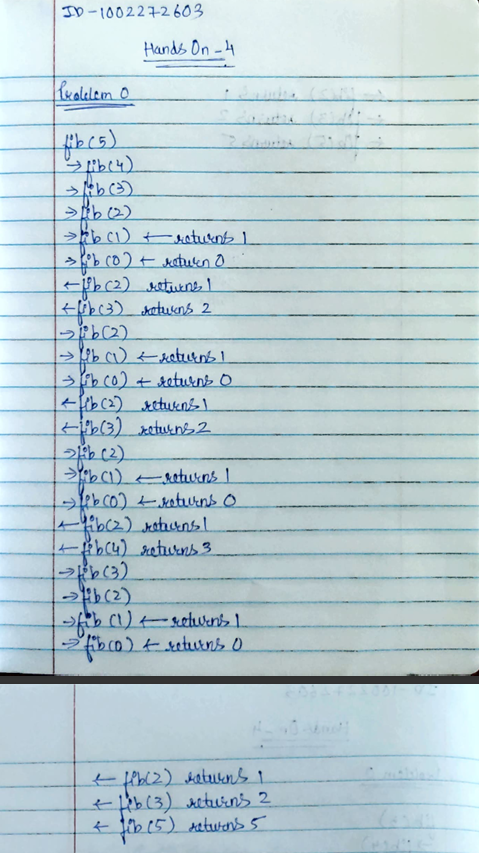 ID-1002272603
Hands On-4
Problem 0
fib(5)
→ fib(4)
→ fib(3)
→ fib(2)
→ fib(1) ← returns 1
→ fib(0) ← return 0
← fib(2) returns 1
← fib(3) returns 2
→ fib(2)
→ fib(1) ← returns 1
→ fib(0) ← returns 0
← fib(2) returns 1
← fib(3) returns 2
→ fib(2)
→ fib(1) ← returns 1
→ fib(0) ← returns 0
← fib(2) returns 1
← fib(4) returns 3
→ fib(3)
→ fib(2)
→ fib(1) ← returns 1
→ fib(0) ← returns 0
← fib(2) returns 1
← fib(3) returns 2
← fib(5) returns 5